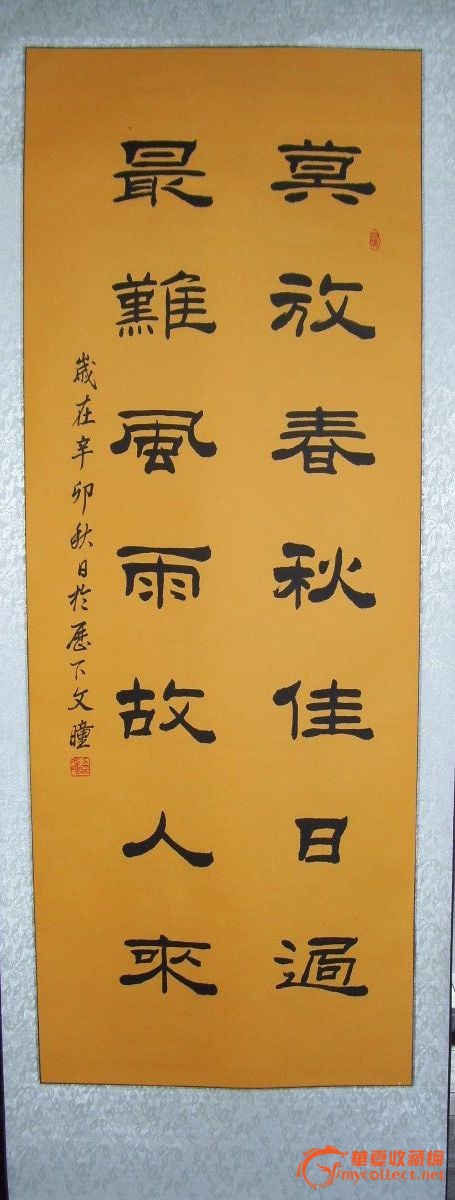 莫放春秋佳日過
最難風雨故人來
歲在辛卯秋日於歷下文瞳
華夏收藏網
mycollect.net